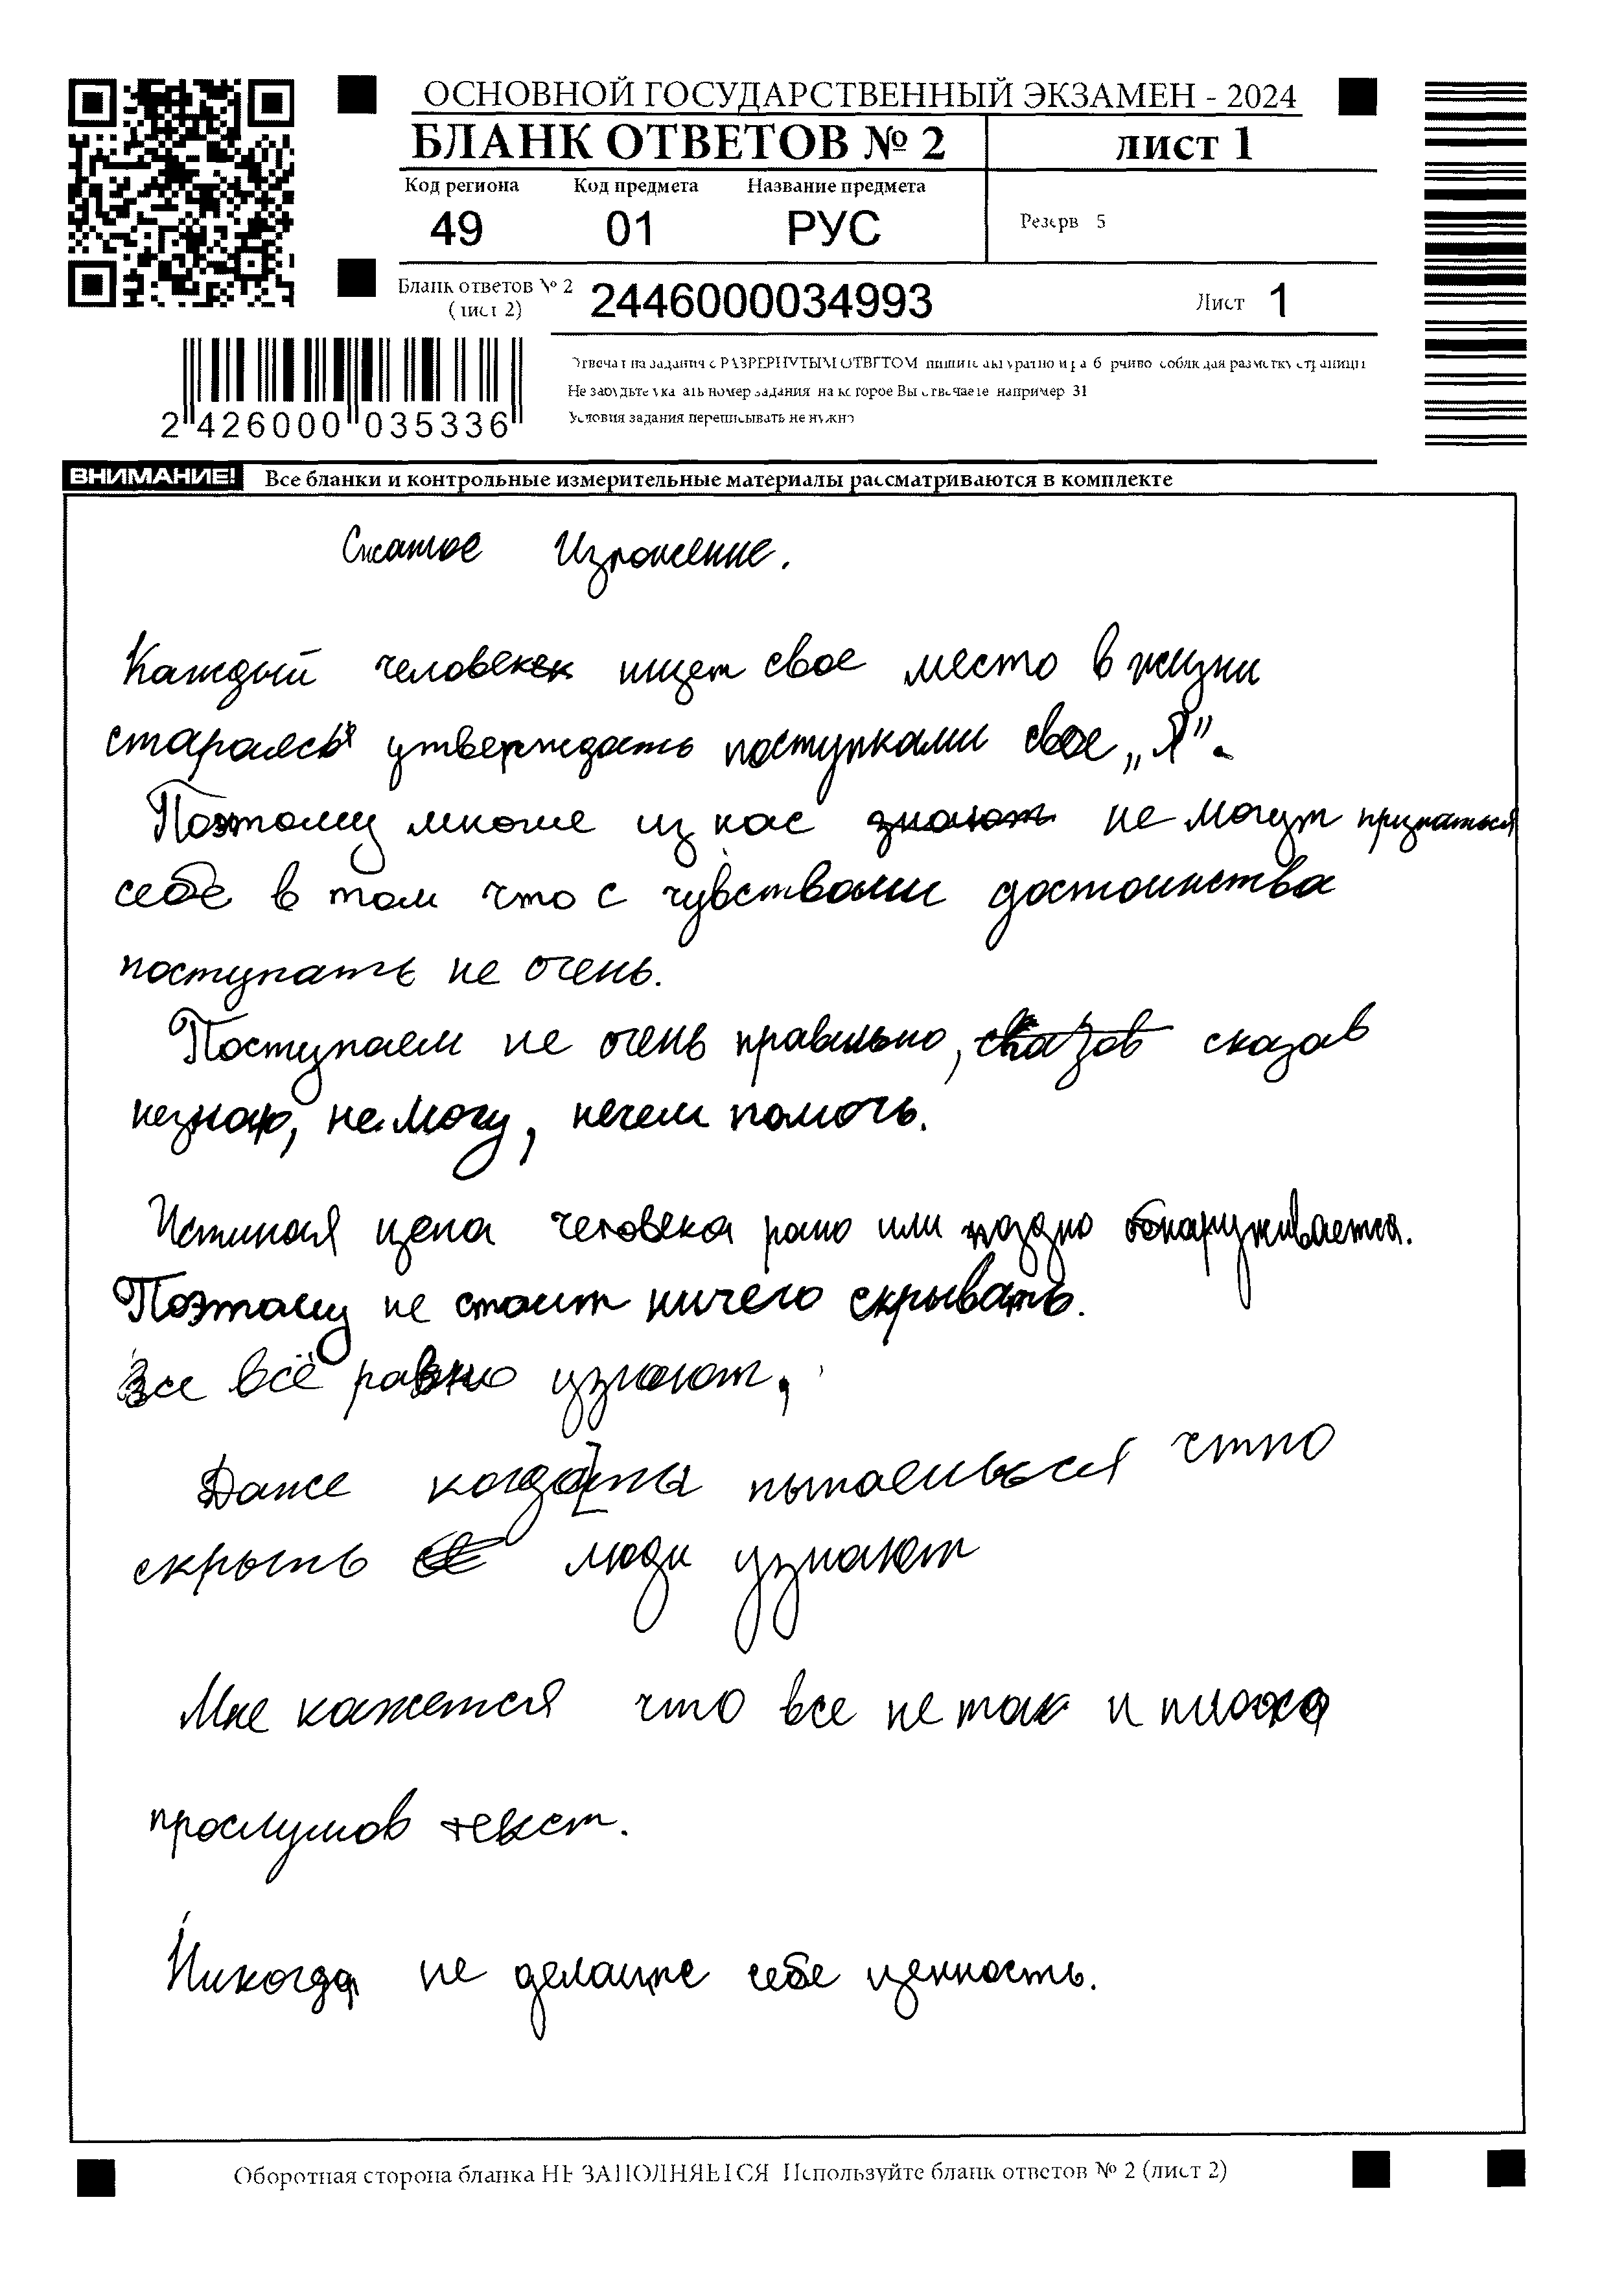 ОСНОВНОЙ ГОСУДАРСТВЕННЫЙ ЭКЗАМЕН - 2024
БЛАНК ОТВЕТОВ № 2 лист 1
Код региона Код предмета Название предмета
49 01 РУС Резерв 5
Бланк ответов № 2
(лист 2) 2446000034993 Лист 1
2 426000 035336
Отвечая на задания с РАЗВЕРНУТЫМ ОТВЕТОМ пишите аккуратно и разборчиво соблюдая разметку страницы
Не забудьте указать номер задания на которое Вы отвечаете например 31
Условия задания переписывать не нужно
ВНИМАНИЕ! Все бланки и контрольные измерительные материалы рассматриваются в комплекте
Сжатое Изложение.
Каждый человек ищет свое место в жизни
стараясь утверждать поступками свое „Я".
Поэтому многие из нас знают не могут признаться
себе в том что с чувствами достоинства
поступать не очень.
Поступаем не очень правильно, сказав сказав
незнаю, не могу, нечем помочь.
Истиная цена человека рано или поздно обнаруживается.
Поэтому не стоит ничего скрывать.
все всё равно узнают.
Даже когда ты пытаешься что
скрыть люди узнают
Мне кажется что все не так и плохо
прослушав текст.
Никогда не делайте себе ценность.
Оборотная сторона бланка НЕ ЗАПОЛНЯЕТСЯ Используйте бланк ответов № 2 (лист 2)